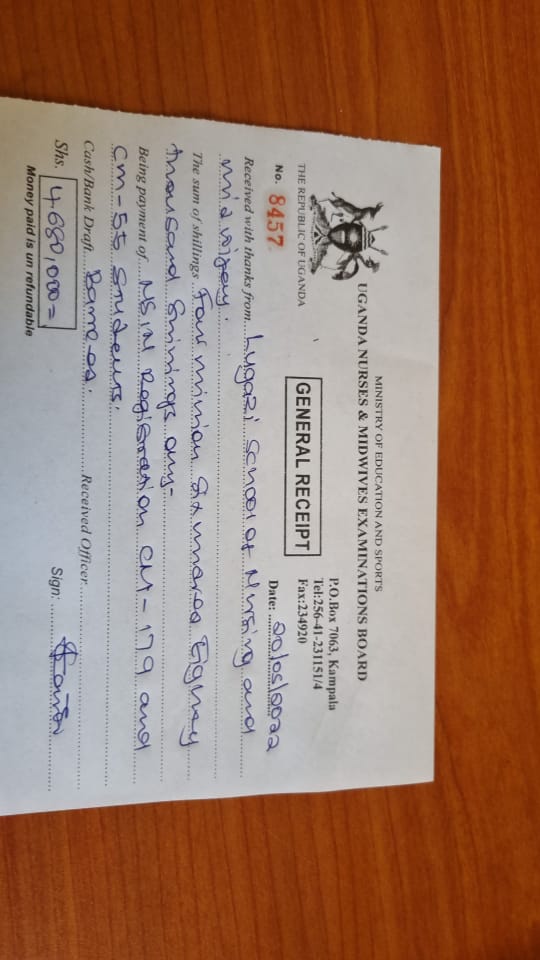 MINISTRY OF EDUCATION AND SPORTS
UGANDA NURSES & MIDWIVES EXAMINATIONS BOARD
THE REPUBLIC OF UGANDA
GENERAL RECEIPT
P.O.Box 7063, Kampala
Tel:256-41-231151/4
Fax:234920
No. 8457
Date: 20/05/2022
Received with thanks from Lugazi School of Nursing and
midwifery.
The sum of shillings Four million Six hundred Eighty
thousand Shillings only-
Being payment of NSIN Registration CN-179 and
CM-55 Students.
Cash/Bank Draft Banked. Received Officer
Shs. 4,680,000= Sign:
Money paid is un refundable